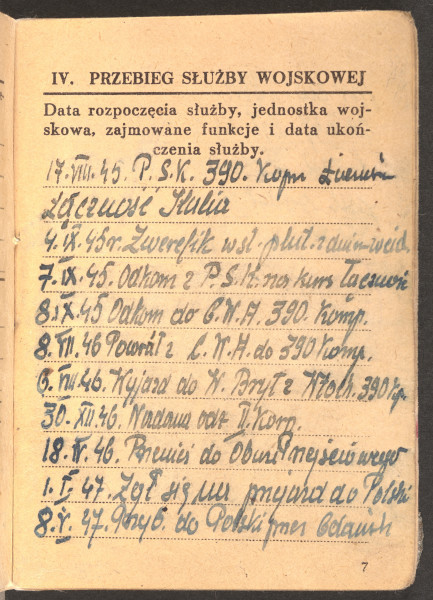 IV. PRZEBIEG SŁUŻBY WOJSKOWEJ
Data rozpoczęcia służby, jednostka woj-
skowa, zajmowane funkcje i data ukoń-
czenia służby.
17.VIII.45. P.S.K. 390. Komp
Łączność Italia
4.IX.45r. plut.
7.IX.45. Odkom z P.S.K. na kurs
8.IX.45 Odkom do C.W.A. 390. Komp.
8.VII.46 Powrót z C.W.A. do 390 Komp.
6.VIII.46. Wyjazd do W. Bryt z Włoch. 390 Kp.
30.XII.46. II. Korp.
18.IV.46. do Obozu
1.I.47. Zgł się na wyjazd do Polski
8.V.47. Przyb. do Polski przez Gdańsk
7